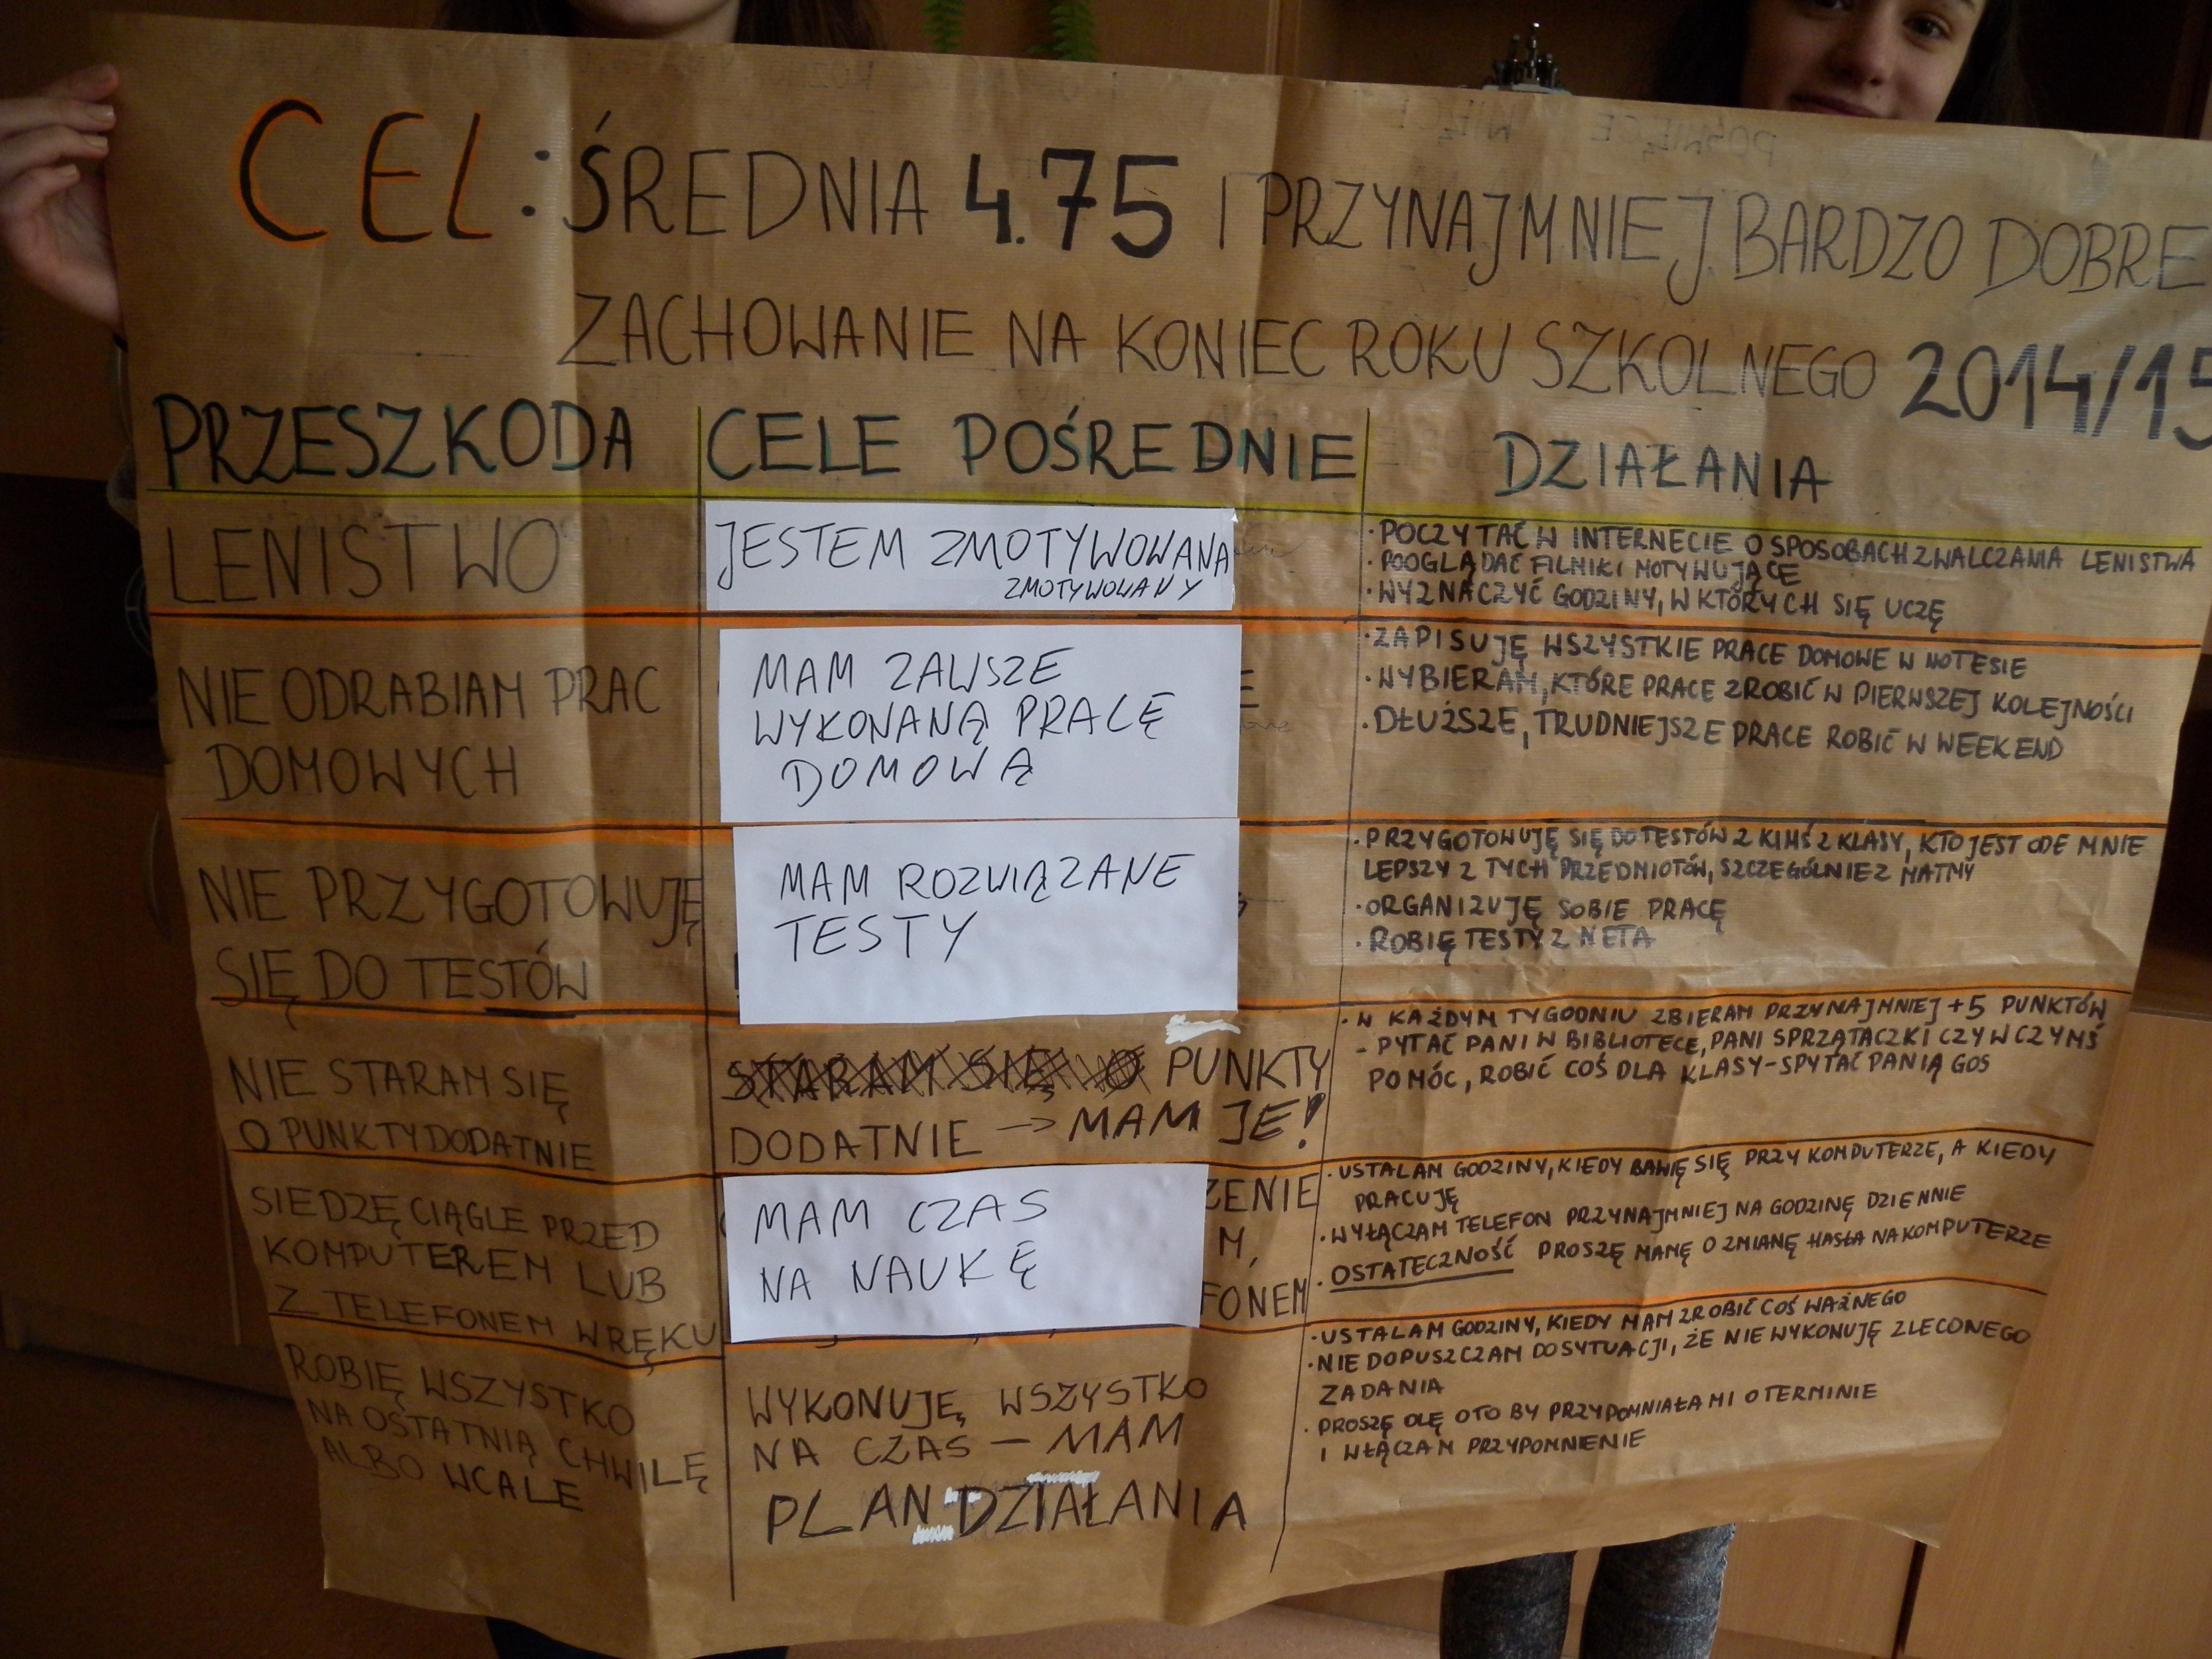 CEL: ŚREDNIA 4.75 I PRZYNAJMNIEJ BARDZO DOBRE
ZACHOWANIE NA KONIEC ROKU SZKOLNEGO 2014/15
PRZESZKODA
CELE POŚREDNIE
DZIAŁANIA
LENISTWO
JESTEM ZMOTYWOWANA
ZMOTYWOWANY
• POCZYTAĆ W INTERNECIE O SPOSOBACH ZWALCZANIA LENISTWA
• POOGLĄDAĆ FILMIKI MOTYWUJĄCE
• WYZNACZYĆ GODZINY, W KTÓRYCH SIĘ UCZĘ
NIE ODRABIAM PRAC
DOMOWYCH
MAM ZAWSZE
WYKONANĄ PRACĘ
DOMOWĄ
• ZAPISUJĘ WSZYSTKIE PRACE DOMOWE W NOTESIE
• WYBIERAM, KTÓRE PRACE ZROBIĆ W PIERWSZEJ KOLEJNOŚCI
• DŁUŻSZE, TRUDNIEJSZE PRACE ROBIĆ W WEEKEND
NIE PRZYGOTOWUJĘ
SIĘ DO TESTÓW
MAM ROZWIĄZANE
TESTY
• PRZYGOTOWUJĘ SIĘ DO TESTÓW Z KIMŚ Z KLASY, KTO JEST ODE MNIE
LEPSZY Z TYCH PRZEDMIOTÓW, SZCZEGÓLNIE Z MATMY
• ORGANIZUJĘ SOBIE PRACĘ
• ROBIĘ TESTY Z NETA
NIE STARAM SIĘ
O PUNKTY DODATNIE
STARAM SIĘ O PUNKTY
DODATNIE → MAM JE!
• W KAŻDYM TYGODNIU ZBIERAM PRZYNAJMNIEJ +5 PUNKTÓW
- PYTAĆ PANI W BIBLIOTECE, PANI SPRZĄTACZKI CZY W CZYMŚ
POMÓC, ROBIĆ COŚ DLA KLASY - SPYTAĆ PANIĄ GOS
SIEDZĘ CIĄGLE PRZED
KOMPUTEREM LUB
Z TELEFONEM W RĘKU
MAM CZAS
NA NAUKĘ
ZENIE
M,
FONEM
• USTALAM GODZINY, KIEDY BAWIĘ SIĘ PRZY KOMPUTERZE, A KIEDY
PRACUJĘ
• WYŁĄCZAM TELEFON PRZYNAJMNIEJ NA GODZINĘ DZIENNIE
• OSTATECZNOŚĆ PROSZĘ MAMĘ O ZMIANĘ HASŁA NA KOMPUTERZE
ROBIĘ WSZYSTKO
NA OSTATNIĄ CHWILĘ
ALBO WCALE
WYKONUJĘ WSZYSTKO
NA CZAS – MAM
PLAN DZIAŁANIA
• USTALAM GODZINY, KIEDY MAM ZROBIĆ COŚ WAŻNEGO
• NIE DOPUSZCZAM DO SYTUACJI, ŻE NIE WYKONUJĘ ZLECONEGO
ZADANIA
• PROSZĘ OLĘ O TO BY PRZYPOMNIAŁA MI O TERMINIE
I WŁĄCZAM PRZYPOMNIENIE